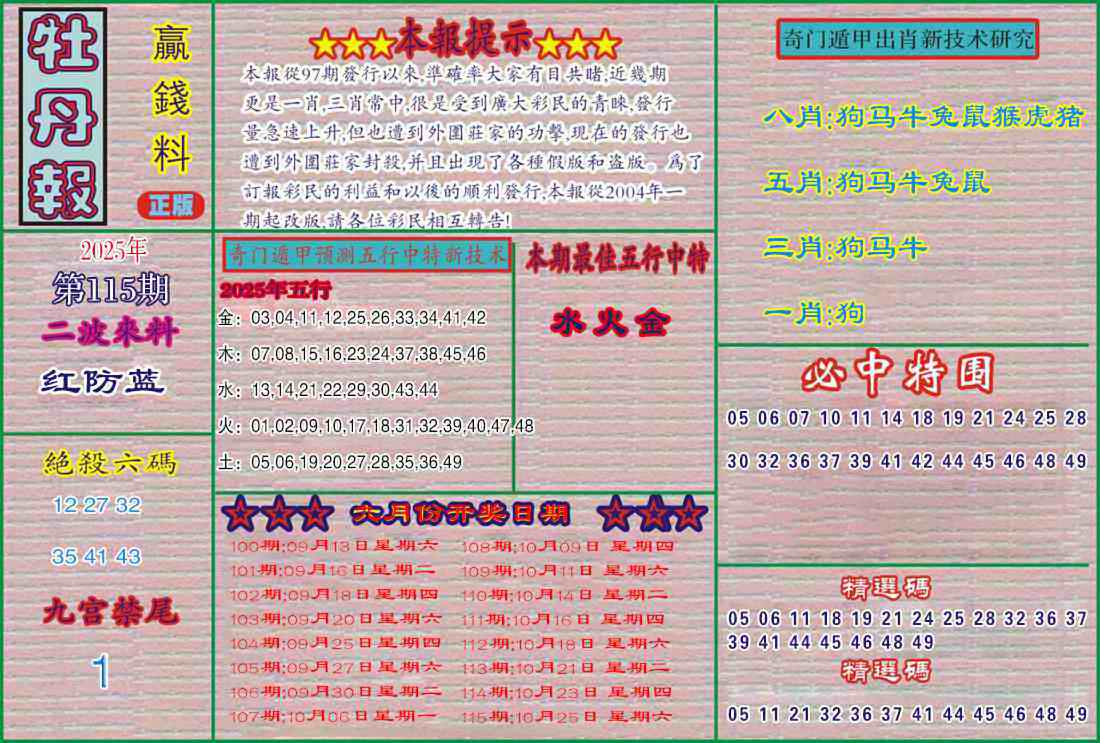 牡丹報
贏錢料
正版
2025年
第115期
二波來料
红防蓝
絕殺六碼
12 27 32
35 41 43
九宫禁尾
1
★★★本報提示★★★
本報從97期發行以來,準確率大家有目共睹,近幾期
更是一肖,三肖常中,很是受到廣大彩民的青睞,發行
量急速上升,但也遭到外圍莊家的功擊,現在的發行也
遭到外圍莊家封殺,并且出現了各種假版和盗版。爲了
訂報彩民的利益和以後的順利發行,本報從2004年一
期起改版,請各位彩民相互轉告!
奇门遁甲预测五行中特新技术
2025年五行
金：03,04,11,12,25,26,33,34,41,42
木：07,08,15,16,23,24,37,38,45,46
水：13,14,21,22,29,30,43,44
火：01,02,09,10,17,18,31,32,39,40,47,48
土：05,06,19,20,27,28,35,36,49
本期最佳五行中特
水火金
★★★ 六月份开奖日期 ★★★
100期:09月13日星期六 108期:10月09日 星期四
101期:09月16日星期二 109期:10月11日 星期六
102期:09月18日星期四 110期:10月14日 星期二
103期:09月20日星期六 111期:10月16日 星期四
104期:09月25日星期四 112期:10月18日 星期六
105期:09月27日星期六 113期:10月21日 星期二
106期:09月30日星期二 114期:10月23日 星期四
107期:10月06日星期一 115期:10月25日 星期六
奇门遁甲出肖新技术研究
八肖:狗马牛兔鼠猴虎猪
五肖:狗马牛兔鼠
三肖:狗马牛
一肖:狗
必中特围
05 06 07 10 11 14 18 19 21 24 25 28
30 32 36 37 39 41 42 44 45 46 48 49
精選碼
05 06 11 18 19 21 24 25 28 32 36 37
39 41 44 45 46 48 49
精選碼
05 11 21 32 36 37 41 44 45 46 48 49